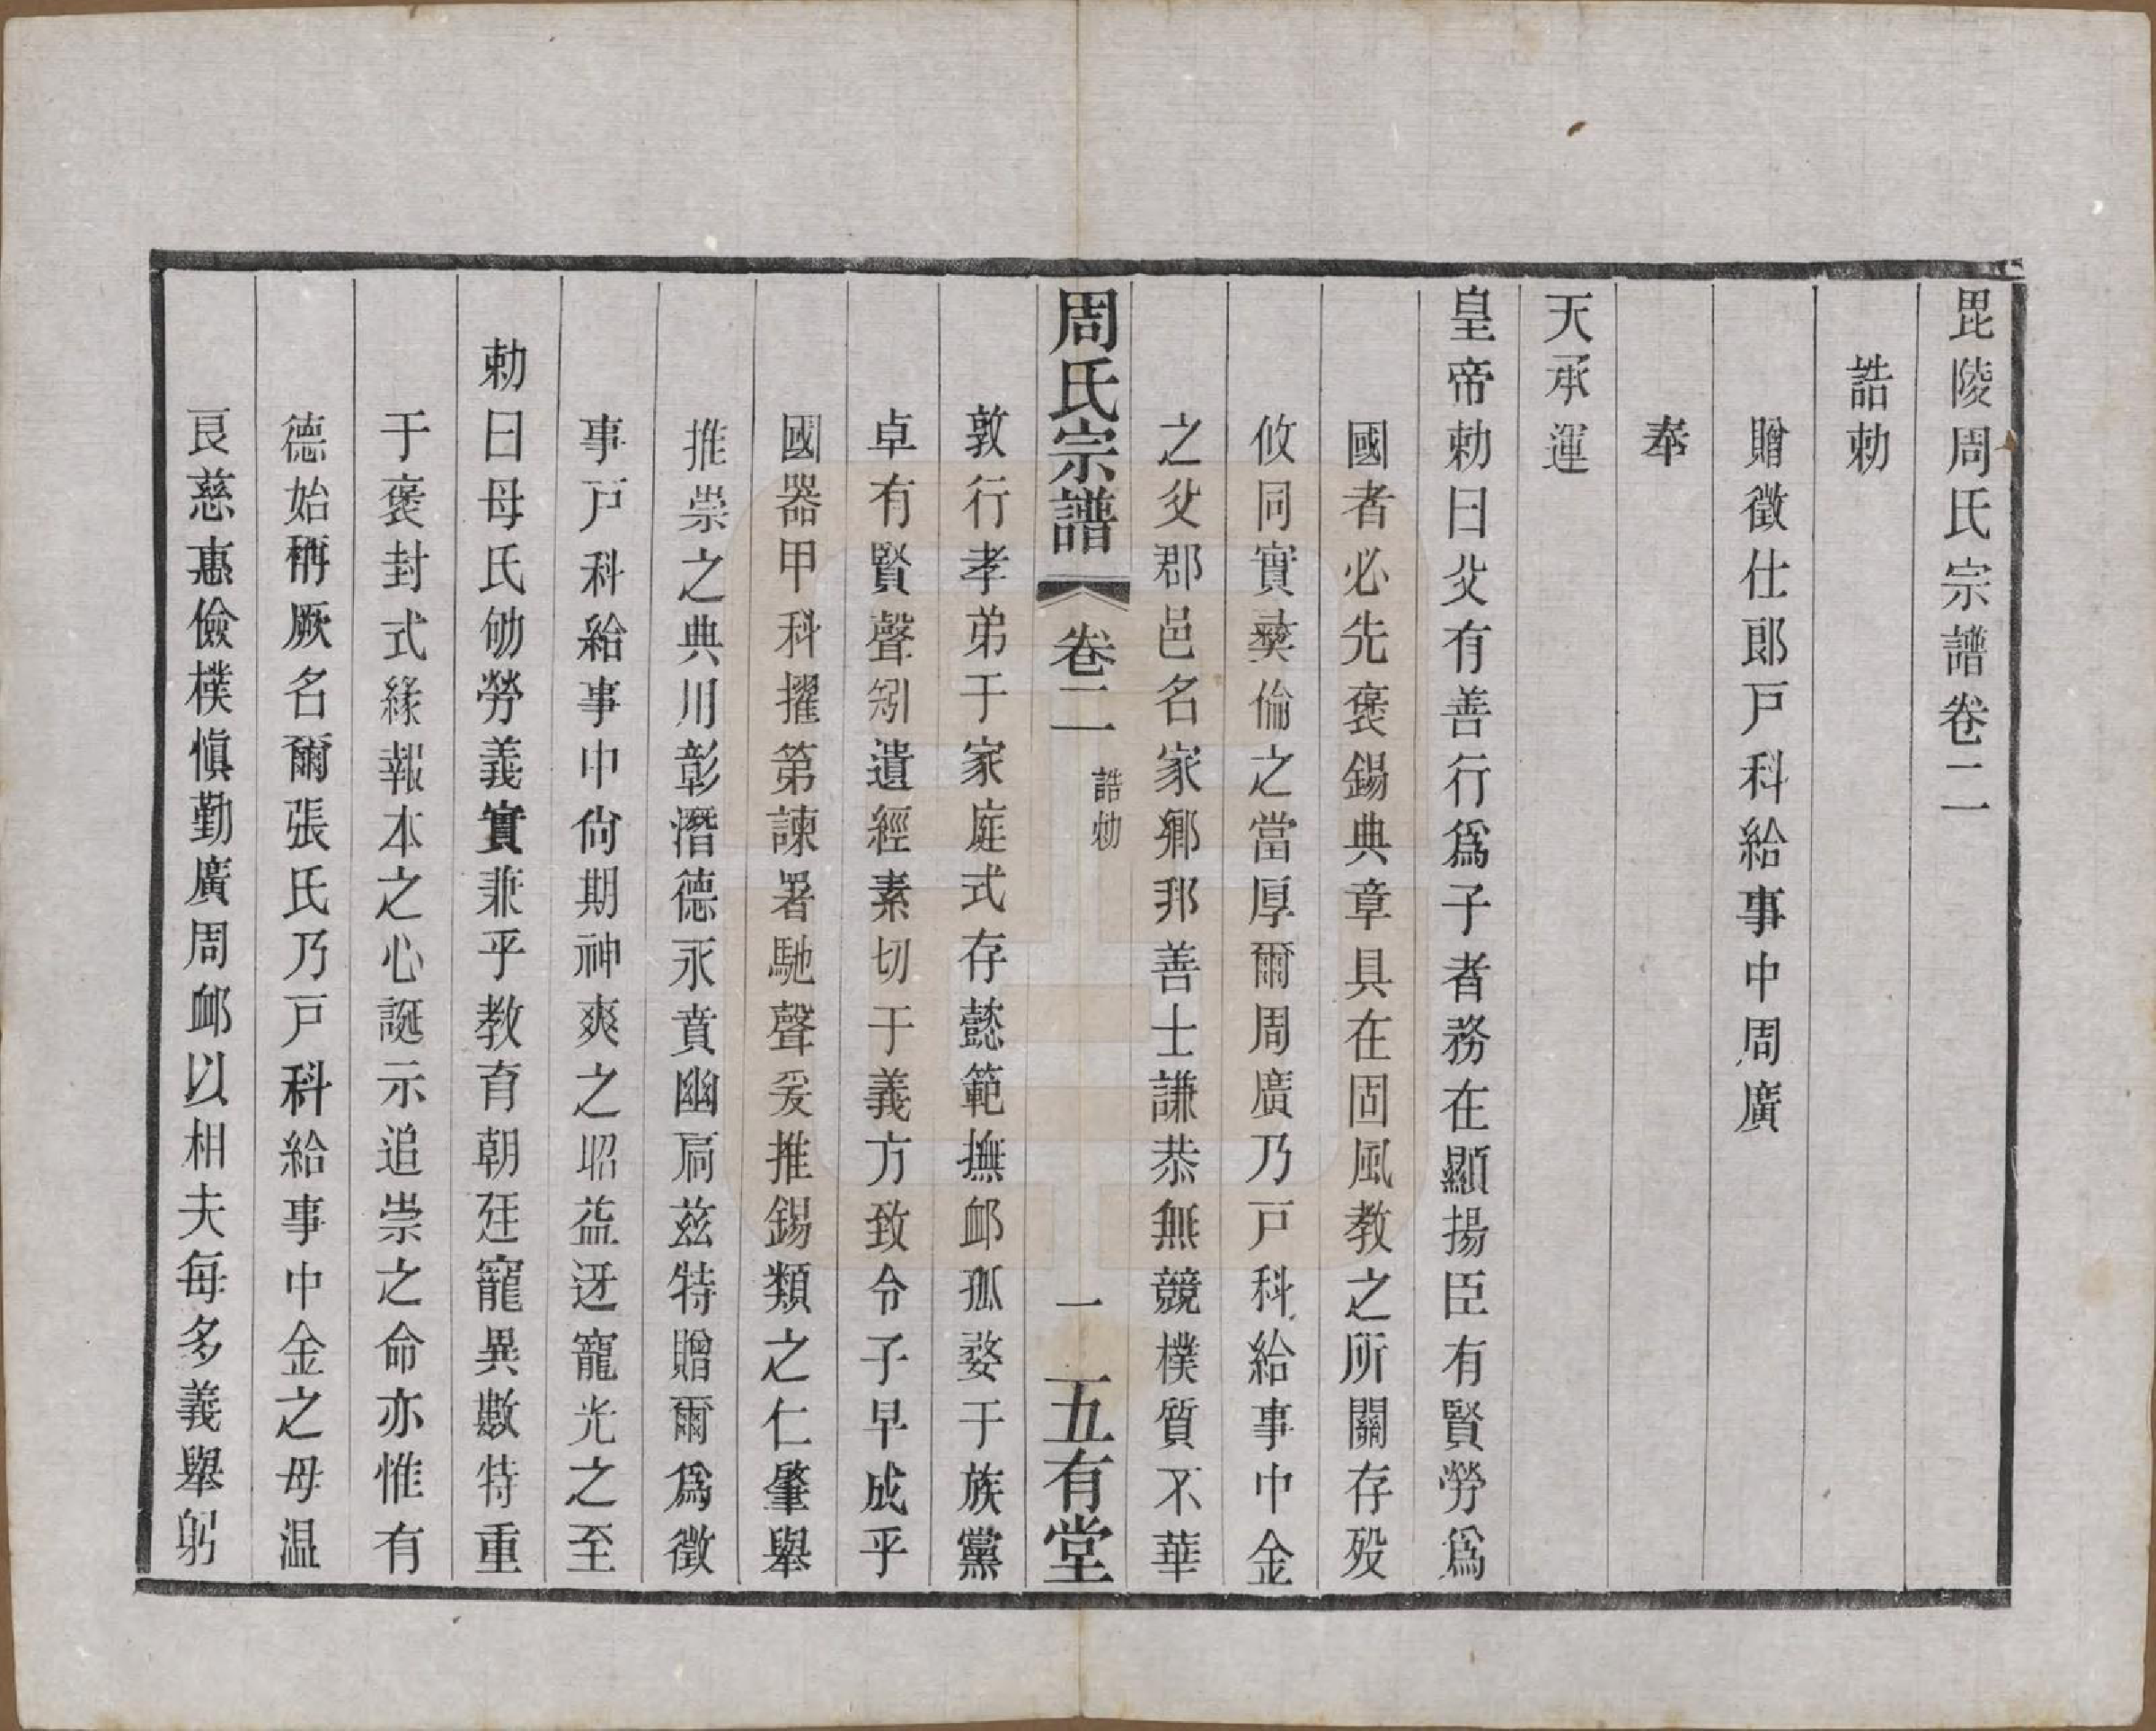 毘陵周氏宗譜卷二
誥勅
贈徵仕郎戸科給事中周廣
奉
天承運
皇帝勅曰父有善行爲子者務在顯揚臣有賢勞爲
國者必先褒錫典章具在固風教之所關存歿
攸同實彝倫之當厚爾周廣乃戸科給事中金
之父郡邑名家鄉邦善士謙恭無競樸質不華
周氏宗譜 卷二 誥勅 一 五有堂
敦行孝弟于家庭式存懿範撫卹孤婺于族黨
卓有賢聲矧遺經素切于義方致令子早成乎
國器甲科擢第諫署馳聲爰推錫類之仁肇舉
推崇之典用彰潛德永賁幽扃兹特贈爾爲徵
事戸科給事中尙期神爽之昭益迓寵光之至
勅曰母氏劬勞義實兼乎教育朝廷寵異數特重
于褒封式緣報本之心誕示追崇之命亦惟有
德始稱厥名爾張氏乃戸科給事中金之母温
良慈惠儉樸愼勤廣周卹以相夫每多義舉躬